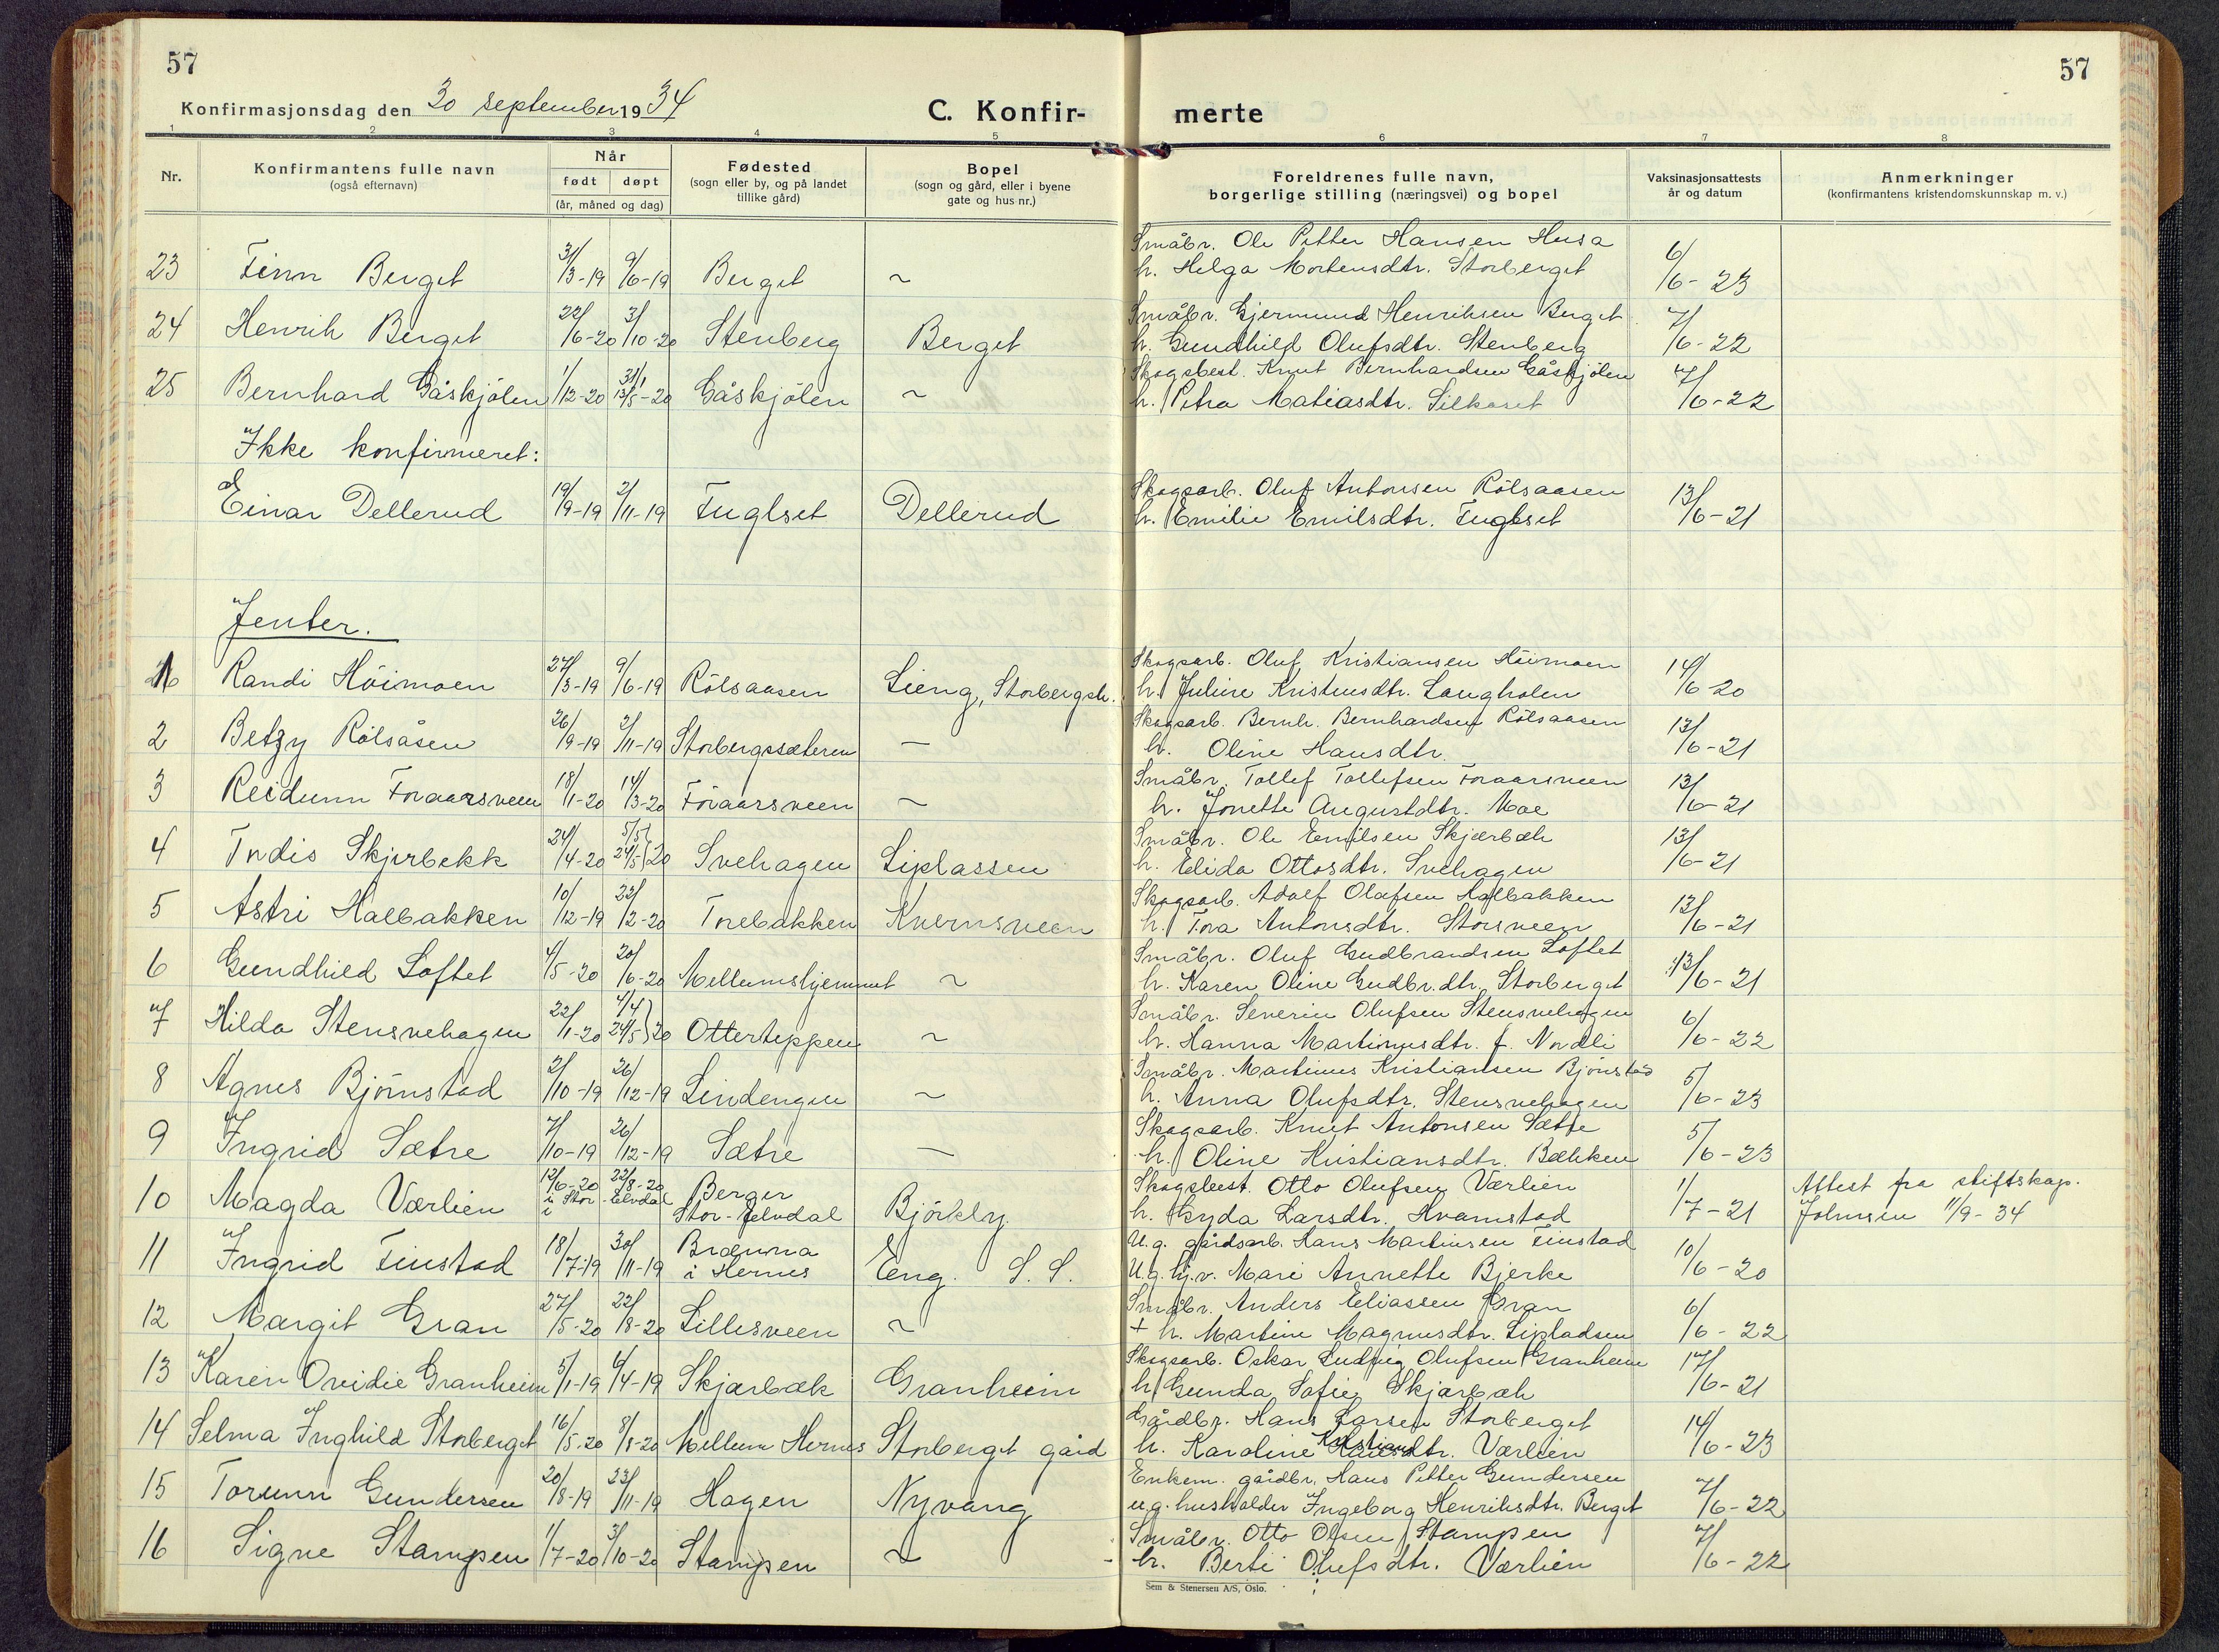 57
57
Konfirmasjonsdag den 30 september 1934
C. Konfir-
merte
1 2 3 4 5 6 7 8
Nr.
Konfirmantens fulle navn
(også efternavn)
Når
født døpt
(år, måned og dag)
Fødested
(sogn eller by, og på landet
tillike gård)
Bopel
(sogn og gård, eller i byene
gate og hus nr.)
Foreldrenes fulle navn,
borgerlige stilling (næringsvei) og bopel
Vaksinasjonsattests
år og datum
Anmerkninger
(konfirmantens kristendomskunnskap m. v.)
Småbr. Ole Petter Hansen Husa
23 Finn Berget 31/3-19 9/6-19 Berget ~ h. Helga Mortensdtr. Storberget 6/6-23
Småbr. Gjermund Henriksen Berget
24 Henrik Berget 22/6-20 3/10-20 Stenberg Berget h. Gundhild Olufsdtr. Stenberg 7/6-22
Skogsbest. Knut Bernhardsen Gåskjølen
25 Bernhard Gåskjølen 1/12-20 Gåskjølen ~ h. Petra Matiasdtr. Silkoset 7/6-22
Ikke konfirmeret:
Skogsarb. Oluf Antonsen Rølsaasen
Einar Dellerud 19/9-19 2/11-19 Fuglset Dellerud h. Emilie Emilsdtr. Fuglset 13/6-21
Jenter.
Skogsarb. Oluf Kristiansen Høimoen
1 Randi Höimoen 27/3-19 9/6-19 Rölsaasen Lieng, Storbergsh. h. Juline Kristensdtr. Langholen 14/6-20
Skogsarb. Bernh. Bernhardsen Rölsaasen
2 Betzy Rölsåsen 26/9-19 2/11-19 Storbergssæteren — h. Oline Hansdtr. 13/6-21
Småbr. Tollef Tollefsen Foraarsveen
3 Reidunn Foraarsveen 18/1-20 14/3-20 Foraarsveen ~ h. Jonette Augustdtr. Moe 13/6-21
Småbr. Ole Emilsen Skjærbæk
4 Tndis Skjerbekk 24/4-20 5/5 24/5}20 Svehagen Liplassen h. Elida Ottosdtr. Svehagen 13/6-21
Skogsarb. Adolf Olafsen Halbakken
5 Astri Halbakken 10/12-19 22/2-20 Torebakken Kvernsveen h. Tora Antonsdtr. Storsveen 13/6-21
Småbr. Oluf Gudbrandsen Loftet
6 Gundhild Loftet 4/5-20 20/6-20 Mellemshjemmet ~ h. Karen Oline Gudbr.dtr. Storberget 13/6-21
Småbr. Severin Olufsen Stensvehagen
7 Hilda Stensvehagen 22/1-20 4/4 24/5}20 Otterteppen ~ h. Hanna Martinusdtr. f. Nordli 6/6-22
Småbr. Martinus Kristiansen Björnstad
8 Agnes Björnstad 2/10-19 26/12-19 Lindengen ~ h. Anna Olufsdtr. Stensvehagen 5/6-23
Skogsarb. Knut Antonsen Sætre
9 Ingrid Sætre 7/10-19 26/12-19 Sætre — h. Oline Kristiansdtr. Bækken 5/6-23
12/6-20 22/8-20 Berger Skogsbest. Otto Olufsen Værlien 1/7-21 Attest fra stiftskap.
10 Magda Værlien i Stor-Elvdal Stor-Elvdal Björkly h. Gyda Larsdtr. Kvamstad Johnsen 11/9-34
U.g. gårdsarb. Hans Martinsen Finstad
11 Ingrid Finstad 18/7-19 30/11-19 Brænna i Hernes Eng. S.S. U.g. hj.v. Mari Annette Bjerke 10/6-20
Småbr. Anders Eliassen Gran
12 Margit Gran 27/5-20 22/8-20 Lillesveen ~ + h. Martine Magnusdtr. Lipladsen 6/6-22
Skogsarb. Oskar Ludvig Olufsen Granheim
13 Karen Ovidie Granheim 5/1-19 6/4-19 Skjærbæk Granheim h. Gunda Sofie Skjærbæk 17/6-21
Gårdbr. Hans Larsen Storberget
14 Selma Inghild Storberget 16/5-20 8/8-20 Mellem Hernes Storberget gård h. Karoline Kristiansdtr. Værlien 14/6-23
Enkem. gårdbr. Hans Petter Gundersen
15 Torunn Gundersen 20/8-19 23/11-19 Hagen Nyvang u.g. husholder Ingeborg Henriksdtr. Berget 7/6-22
Småbr. Otto Olsen Stampen
16 Signe Stampen 1/7-20 3/10-20 Stampen ~ h. Berti Olufsdtr. Værlien 7/6-22
Sem & Stenersen A/S, Oslo.